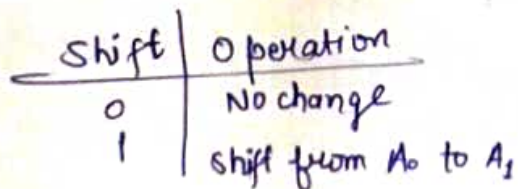 Shift Operation
0 No change
1 shift from A₀ to A₁